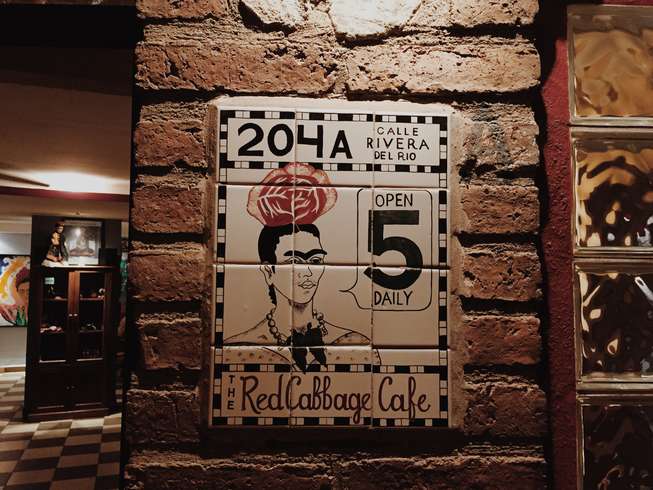 204A
CALLE
RIVERA
DEL RIO
OPEN
5
DAILY
THE Red Cabbage Cafe